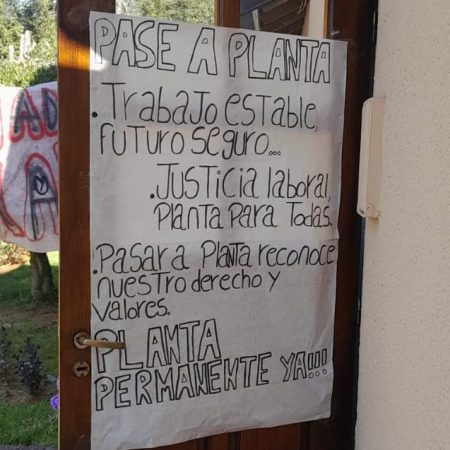 PASE A PLANTA
.Trabajo estable,
futuro seguro...
.Justicia laboral,
Planta para todas.
.Pasar a Planta reconoce
nuestro derecho y
valores.
PLANTA
PERMANENTE YA!!!